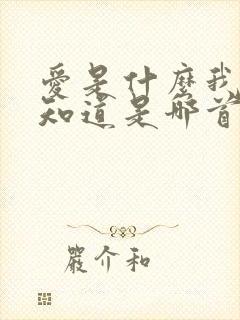 愛是什麼我
知道是那首
嚴介和